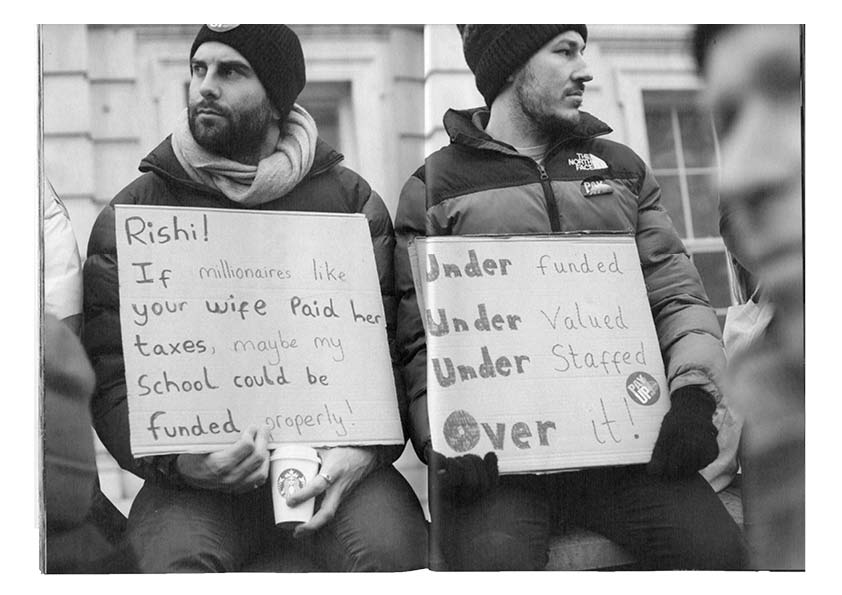 Rishi!
If millionaires like
your wife Paid her
taxes, maybe my
School could be
funded properly!
THE
NORTH
FACE
PAY
Under funded
Under Valued
Under Staffed
Over it!
PAY
UP!